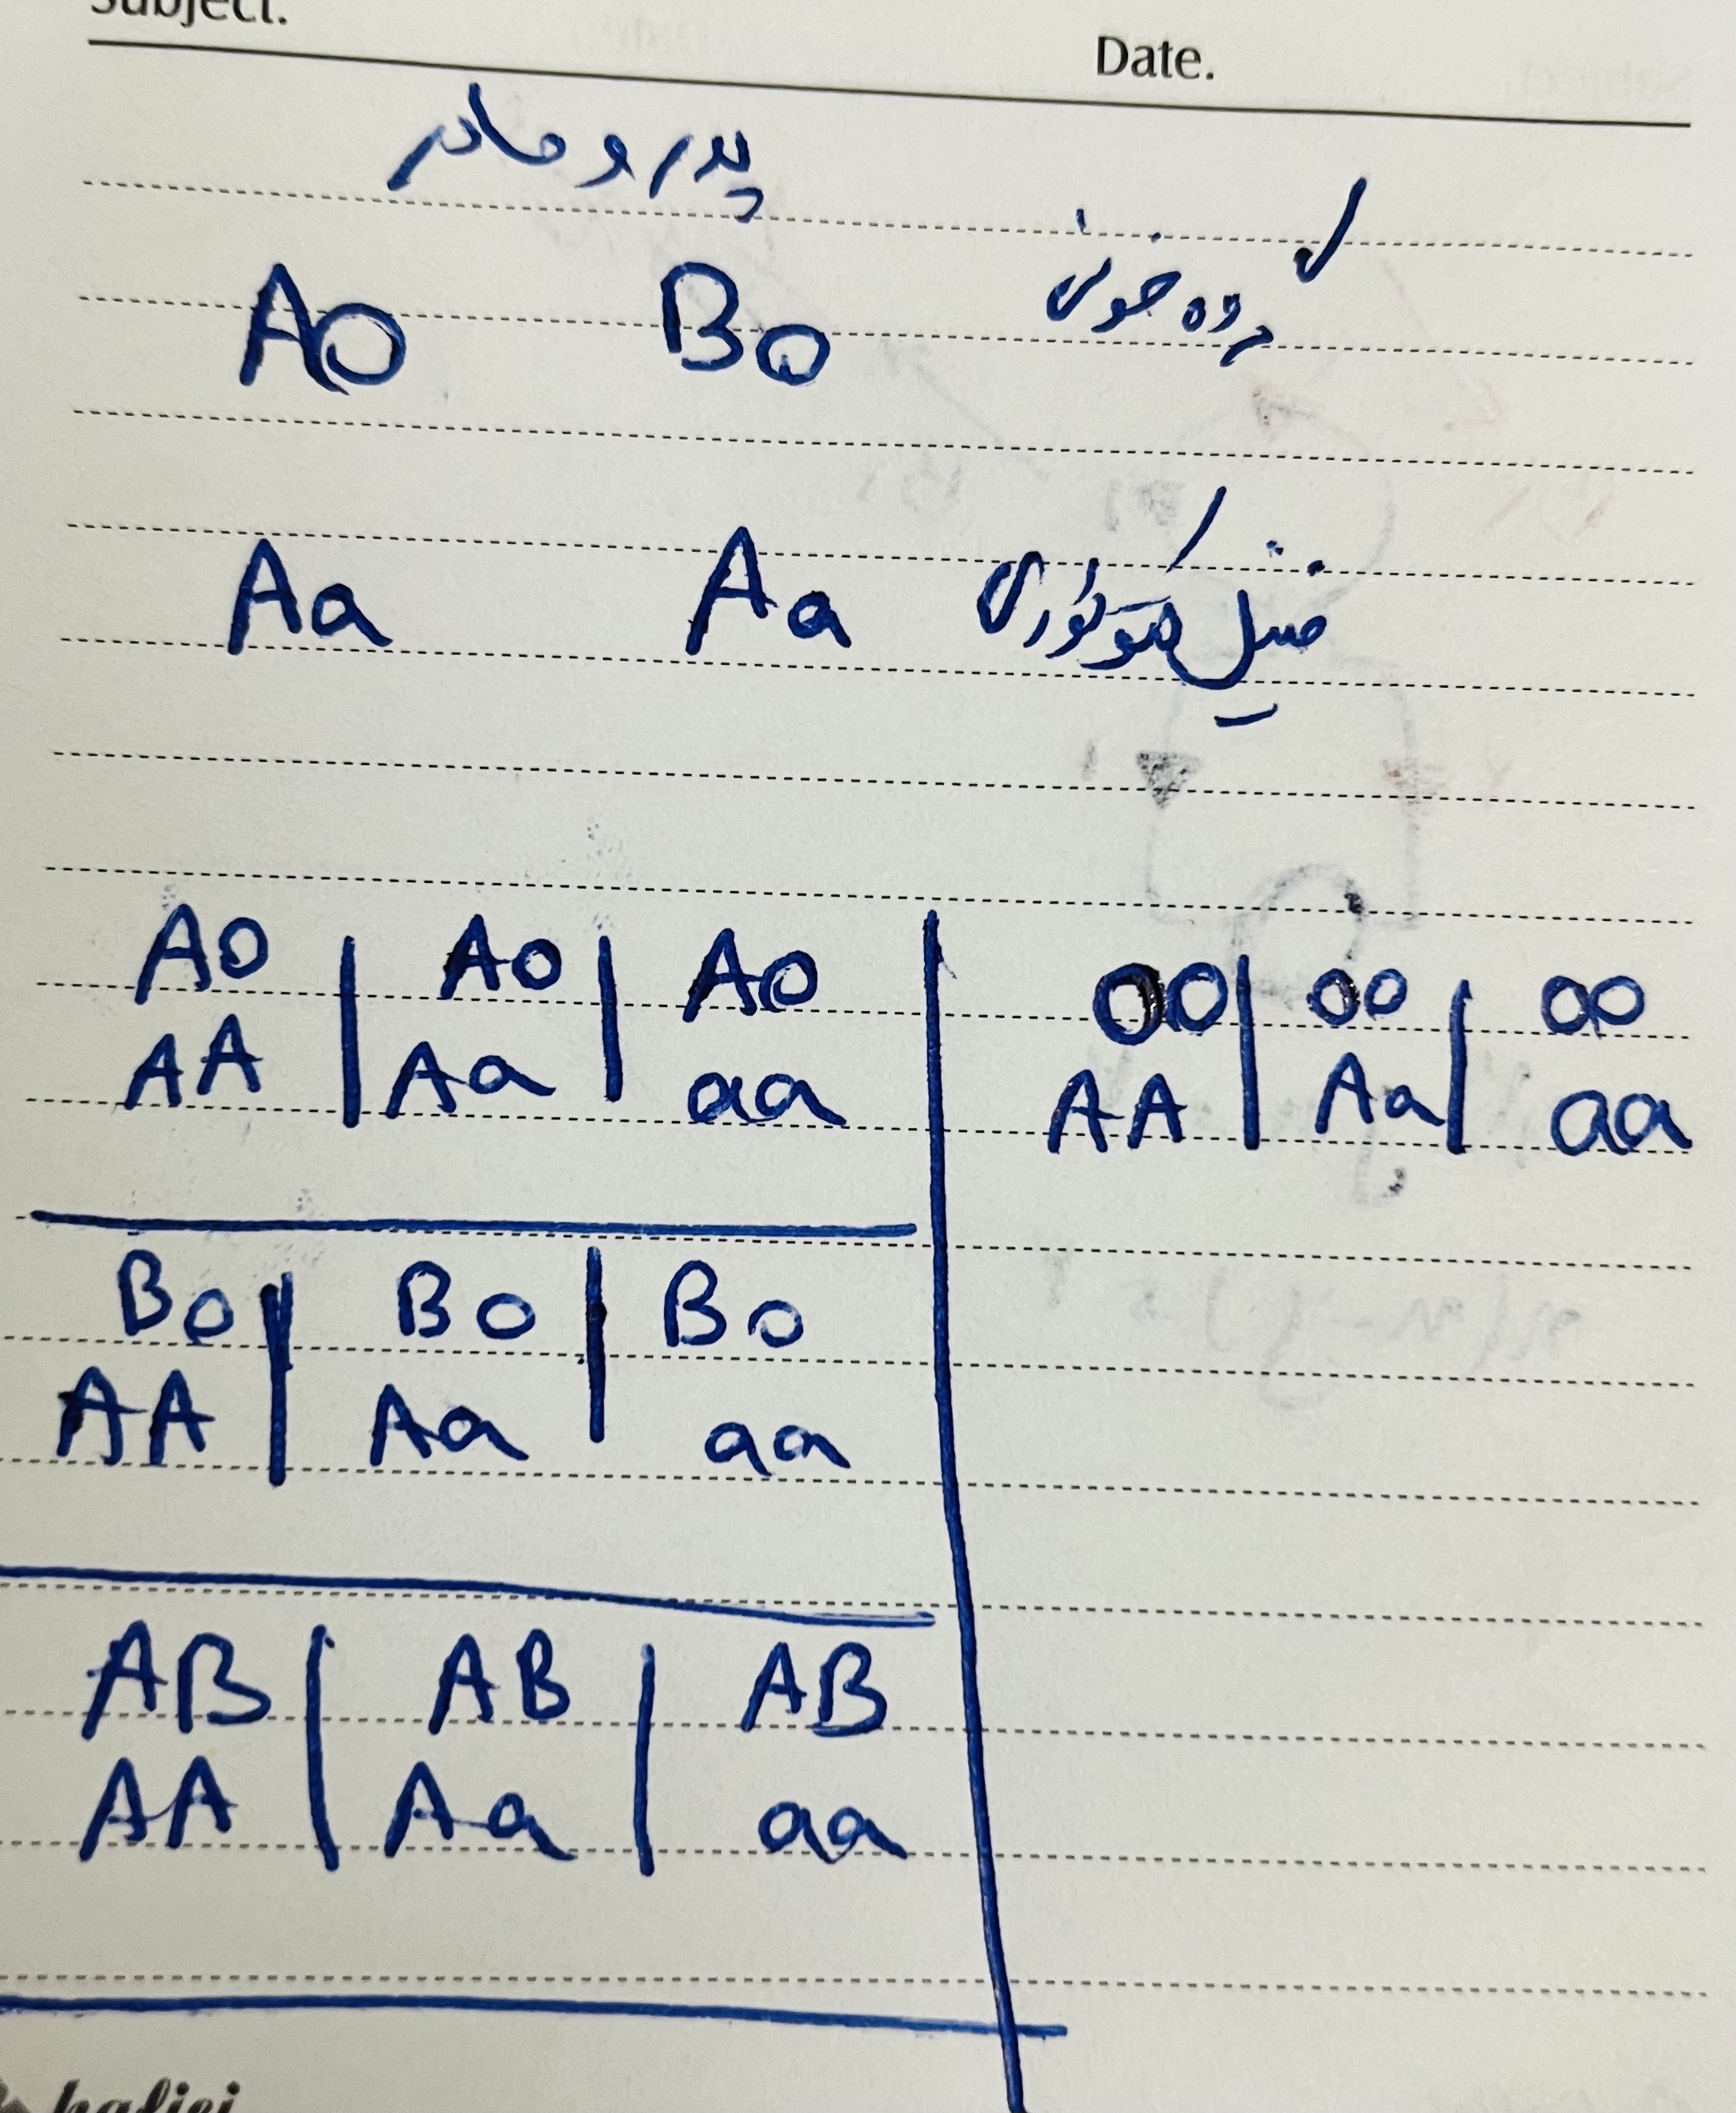 Subject.
Date.
پدر و مادر
AO BO گروه خونی
Aa Aa فنیل کتونوری
AO | AO | AO | OO | OO | OO
AA | Aa | aa | AA | Aa | aa
BO | BO | BO
AA | Aa | aa
AB | AB | AB
AA | Aa | aa